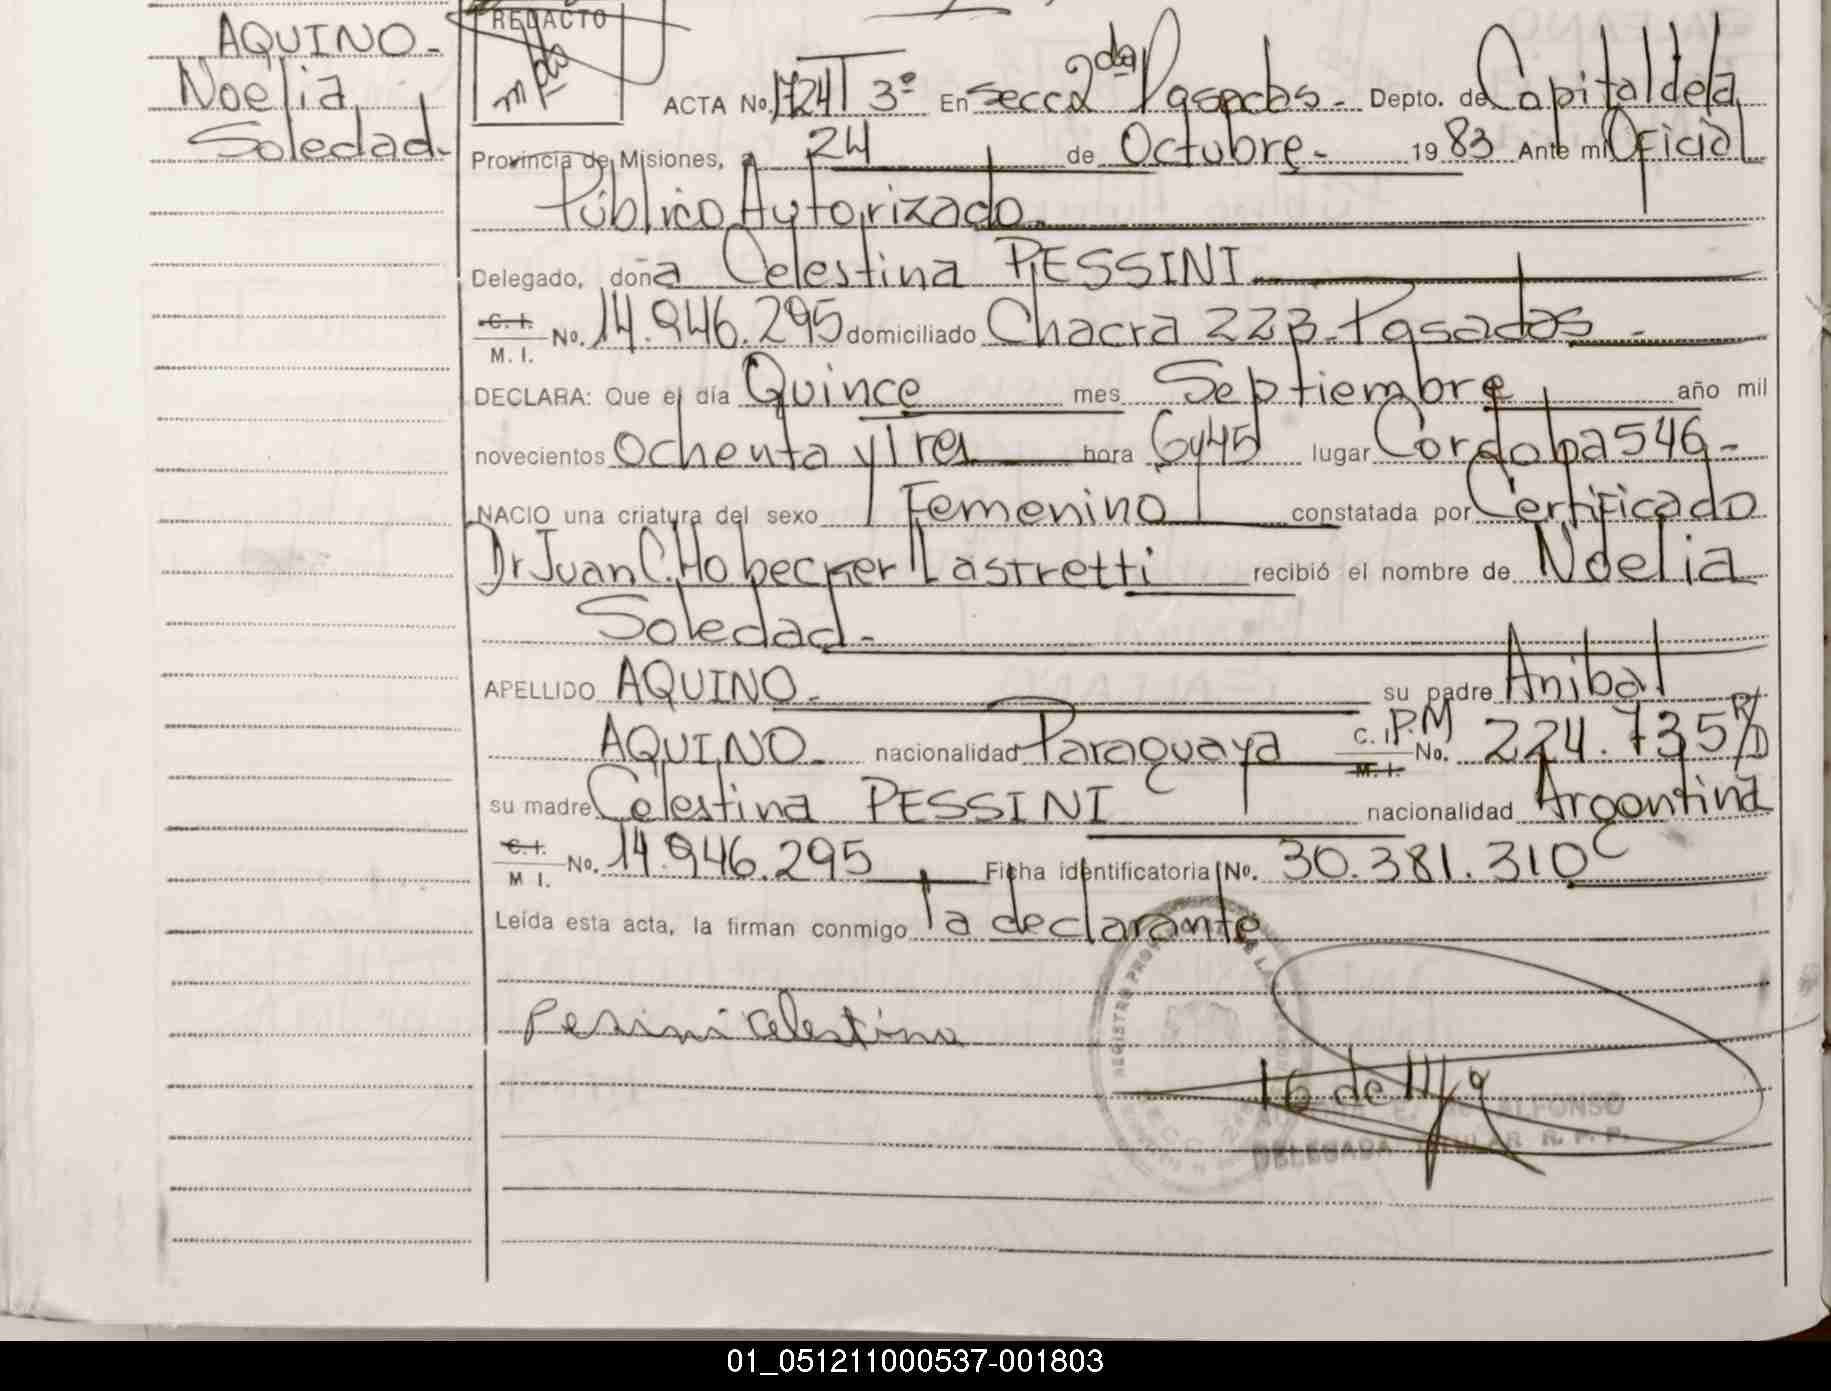 AQUINO-
Noelia
Soledad-
REDACTO
ACTA No. 1724 T 3º En Secc 2da Posadas- Depto. de Capital de la
Provincia de Misiones, a 24 de Octubre- 1983 Ante mi Oficial
Público Autorizado-
Delegado, doña Celestina PESSINI
C. I. M. I. No. 14.946.295 domiciliado Chacra 223-Posadas-
DECLARA: Que el día Quince mes Septiembre año mil
novecientos ochenta y Tres hora 6y45 lugar Cordoba 546-
NACIO una criatura del sexo Femenino constatada por Certificado
Dr Juan C. Hobecker Lastretti recibió el nombre de Noelia
Soledad-
APELLIDO AQUINO- su padre Anibal
AQUINO- nacionalidad Paraguaya C. I. P.M M. I. No. 224.735 R/D
su madre Celestina PESSINI nacionalidad Argentina
C. I. M I. No. 14.946.295 Ficha identificatoria No. 30.381.310
Leída esta acta, la firman conmigo la declarante
Pesini celestina
REGISTRO PRO
16 de
ALFONSO
DELEGADA TITULAR R. P. P.
01_051211000537-001803